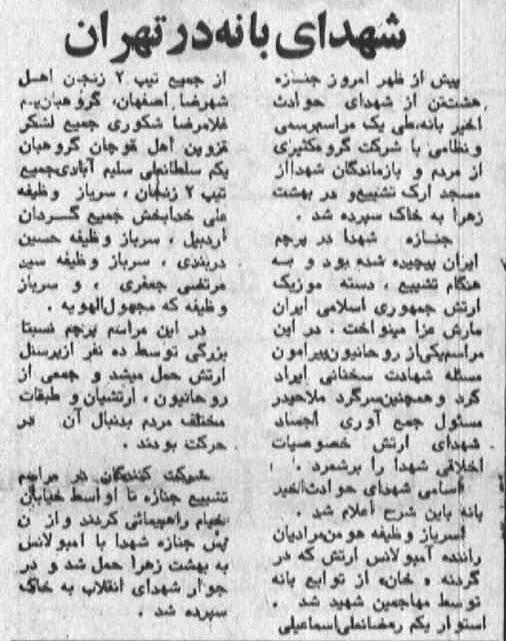 شهدای بانه در تهران
پیش از ظهر امروز جنازه
هشت‌تن از شهدای حوادث
اخیر بانه، طی یک مراسم رسمی
و نظامی با شرکت گروه کثیری
از مردم و بازماندگان شهدا از
مسجد ارک تشییع و در بهشت
زهرا به خاک سپرده شد .
جنازه شهدا در پرچم
ایران پیچیده شده بود و به
هنگام تشییع ، دسته موزیک
ارتش جمهوری اسلامی ایران
مارش عزا مینواخت . در این
مراسم یکی از روحانیون پیرامون
مسئله شهادت سخنانی ایراد
کرد و همچنین سرگرد ملاحیدر
مسئول جمع آوری اجساد
شهدای ارتش خصوصیات
اخلاقی شهدا را برشمرد .
اسامی شهدای حوادث اخیر
بانه باین شرح اعلام شد .
سرباز وظیفه هومن مرادیان
راننده آمبولانس ارتش که در
گردنه « خان» از توابع بانه
توسط مهاجمین شهید شد .
استوار یکم رمضانعلی اسماعیلی
از جمیع تیپ ۲ زنجان اهل
شهرضا اصفهان، گروهبان یکم
غلامرضا شکوری جمیع لشکر
قزوین اهل قوچان گروهبان
یکم سلطانعلی سلیم آبادی جمیع
تیپ ۲ زنجان ، سرباز وظیفه
علی خدابخش جمیع گردان
اردبیل ، سرباز وظیفه حسین
دربندی ، سرباز وظیفه سید
مرتضی جعفری ، و سرباز
وظیفه که مجهول‌الهویه .
در این مراسم پرچم نسبتا
بزرگی توسط ده نفر از پرسنل
ارتش حمل میشد و جمعی از
روحانیون ، ارتشیان و طبقات
مختلف مردم بدنبال آن در
حرکت بودند .
شرکت کنندگان در مراسم
تشییع جنازه تا اواسط خیابان
خیام راهپیمائی کردند و از
پس جنازه شهدا با آمبولانس
به بهشت زهرا حمل شد و در
جوار شهدای انقلاب به خاک
سپرده شد .